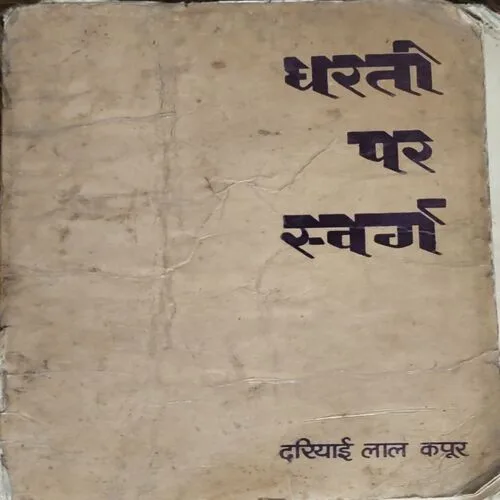 धरती
पर
स्वर्ग
दरियाई लाल कपूर